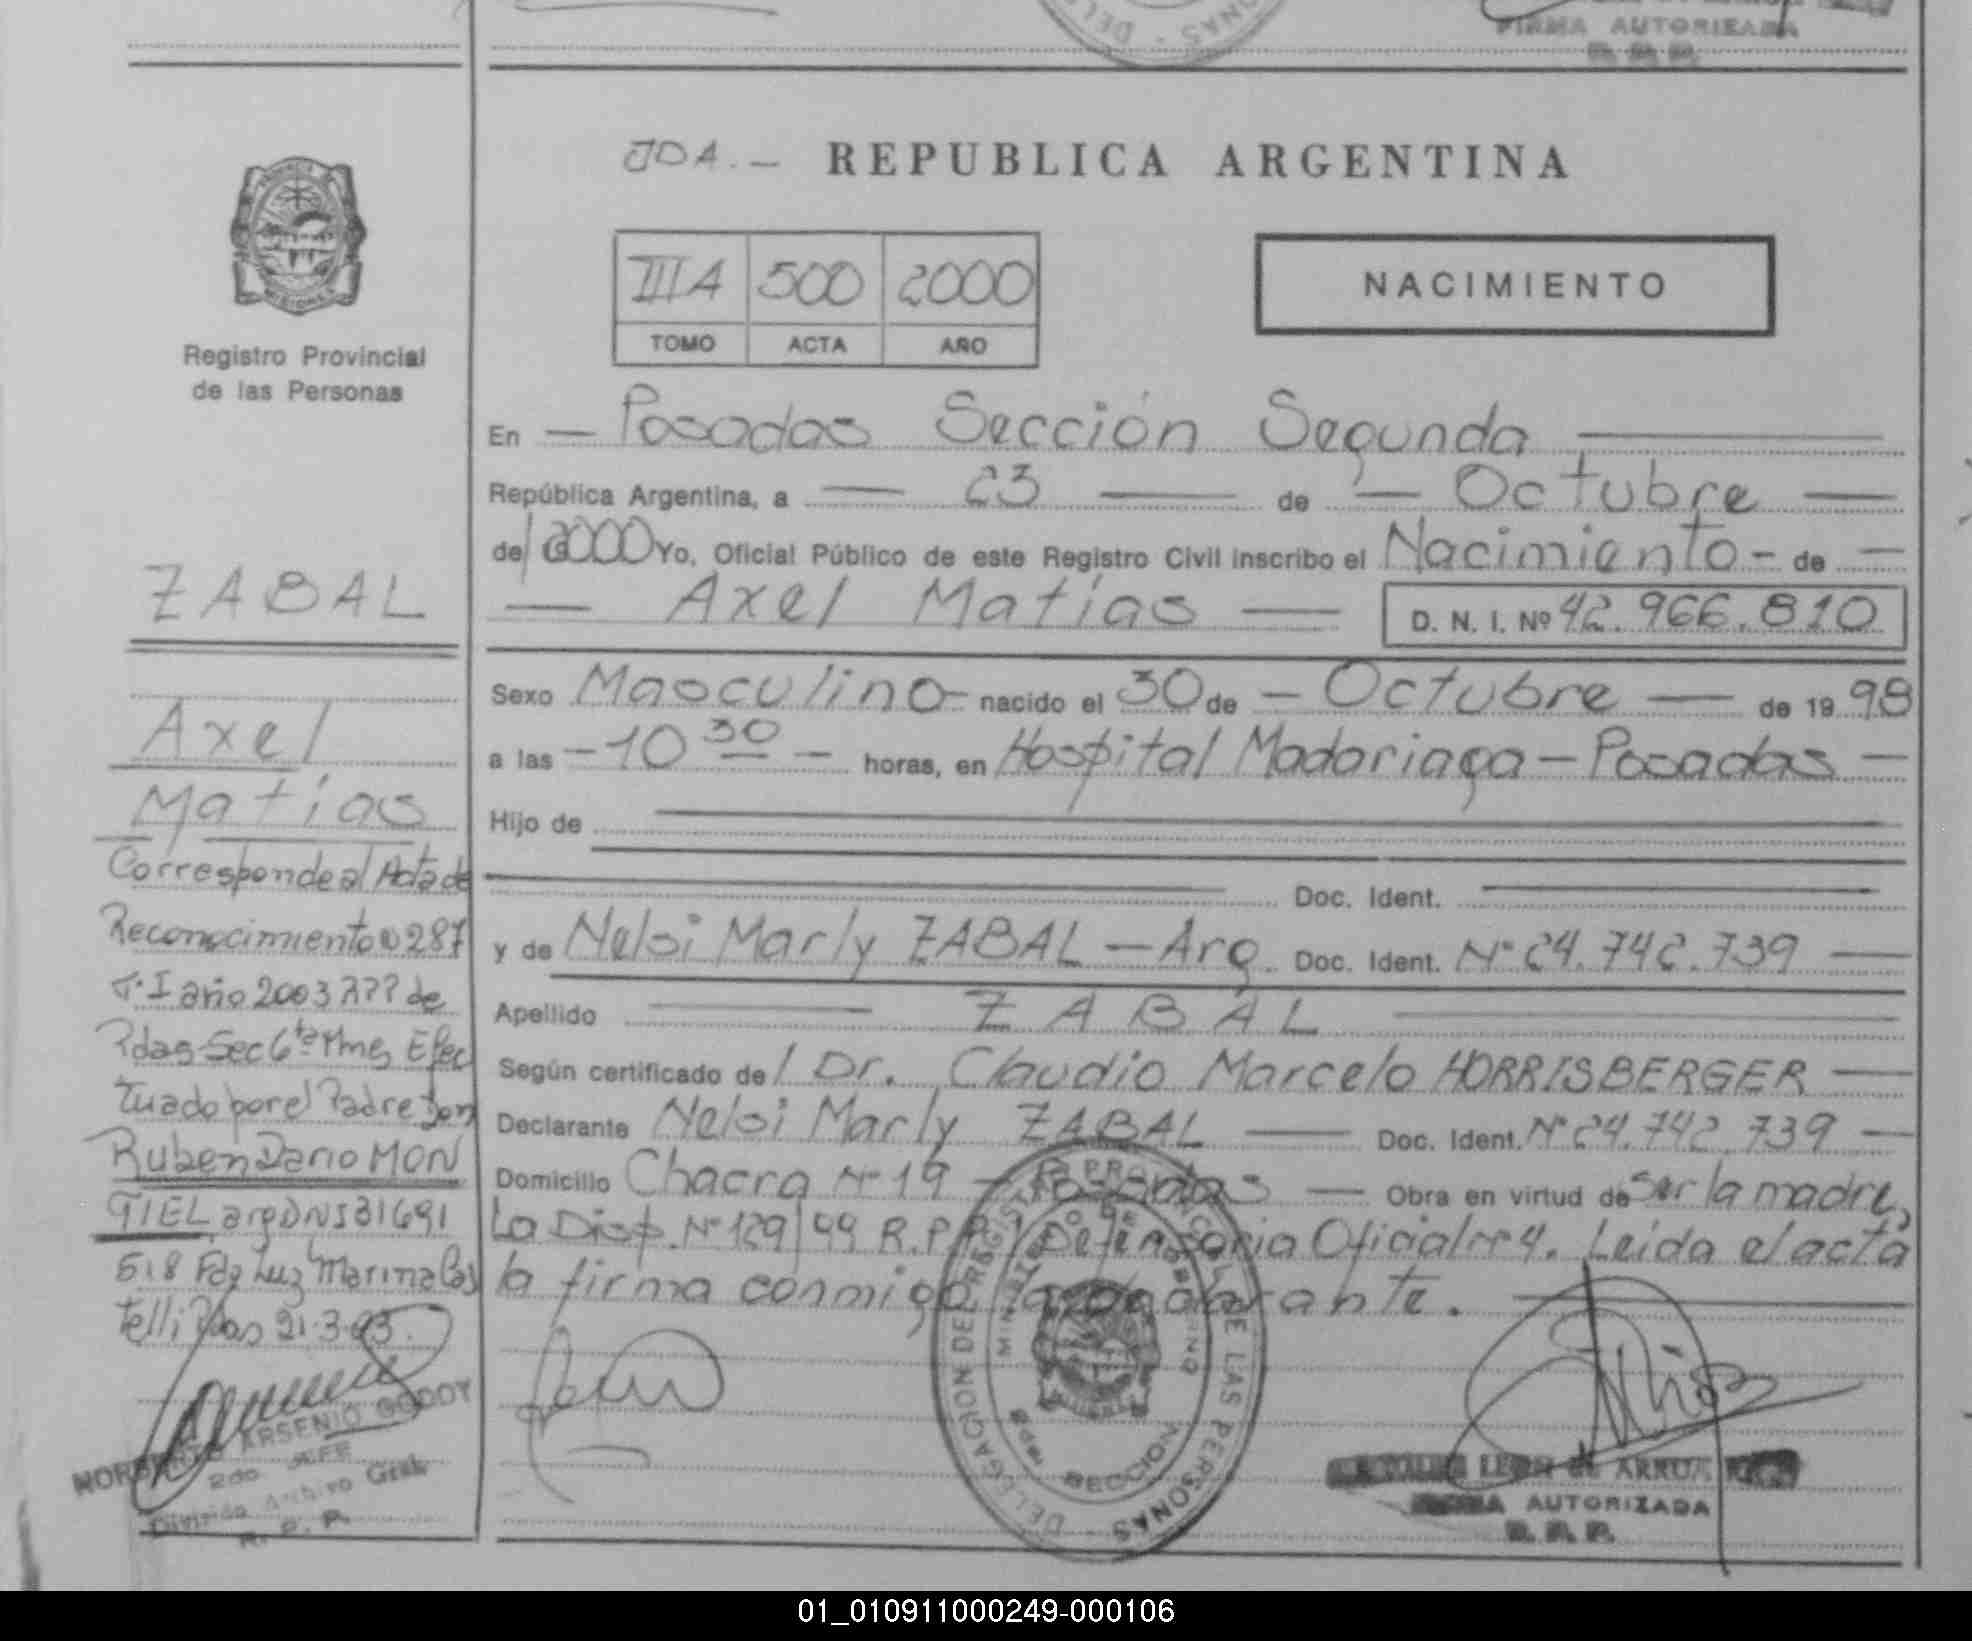 FIRMA AUTORIZADA
R. P. P.
JDA. — REPUBLICA ARGENTINA
IIIA 500 2000
TOMO ACTA AÑO
NACIMIENTO
Registro Provincial
de las Personas
En — Posadas Sección Segunda —
República Argentina, a — 23 — de — Octubre —
de 2000 Yo, Oficial Público de este Registro Civil inscribo el Nacimiento - de —
— Axel Matías — D. N. I. Nº 42.966.810
Sexo Masculino - nacido el 30 de — Octubre — de 19 98
a las - 10 30 - horas, en Hospital Madariaga - Posadas -
Hijo de
Doc. Ident.
y de Nelsi Marly ZABAL - Arg. Doc. Ident. Nº 24.742.739 —
Apellido — ZABAL —
Según certificado de / Dr. Claudio Marcelo HORRISBERGER —
Declarante Nelsi Marly ZABAL — Doc. Ident. Nº 24.742.739 —
Domicilio Chacra Nº 19 - Posadas — Obra en virtud de Ser la madre,
La Disp. Nº 129/99 R.P.P. y Defensoria Oficial Nº 4. Leída el acta
la firma conmigo la declarante.
ZABAL
Axel
Matías
Corresponde al Acta de
Reconocimiento 287
T. I año 2003 de
Pdas Sec 6ta Mnes Efec
tuado por el Padre Don
Ruben Dario MON
TIEL arg DNI 31691
518 Fdo Luz Marina Cas
telli Pdas 21.3.03.
ARSENIO GODOY
2do JEFE
División Archivo Gral.
R. P. P.
DELEGACION DEL REGISTRO PROVINCIAL DE LAS PERSONAS
MINISTERIO DE GOBIERNO
SECCION
LEON de ARRUA
FIRMA AUTORIZADA
R. P. P.
01_010911000249-000106